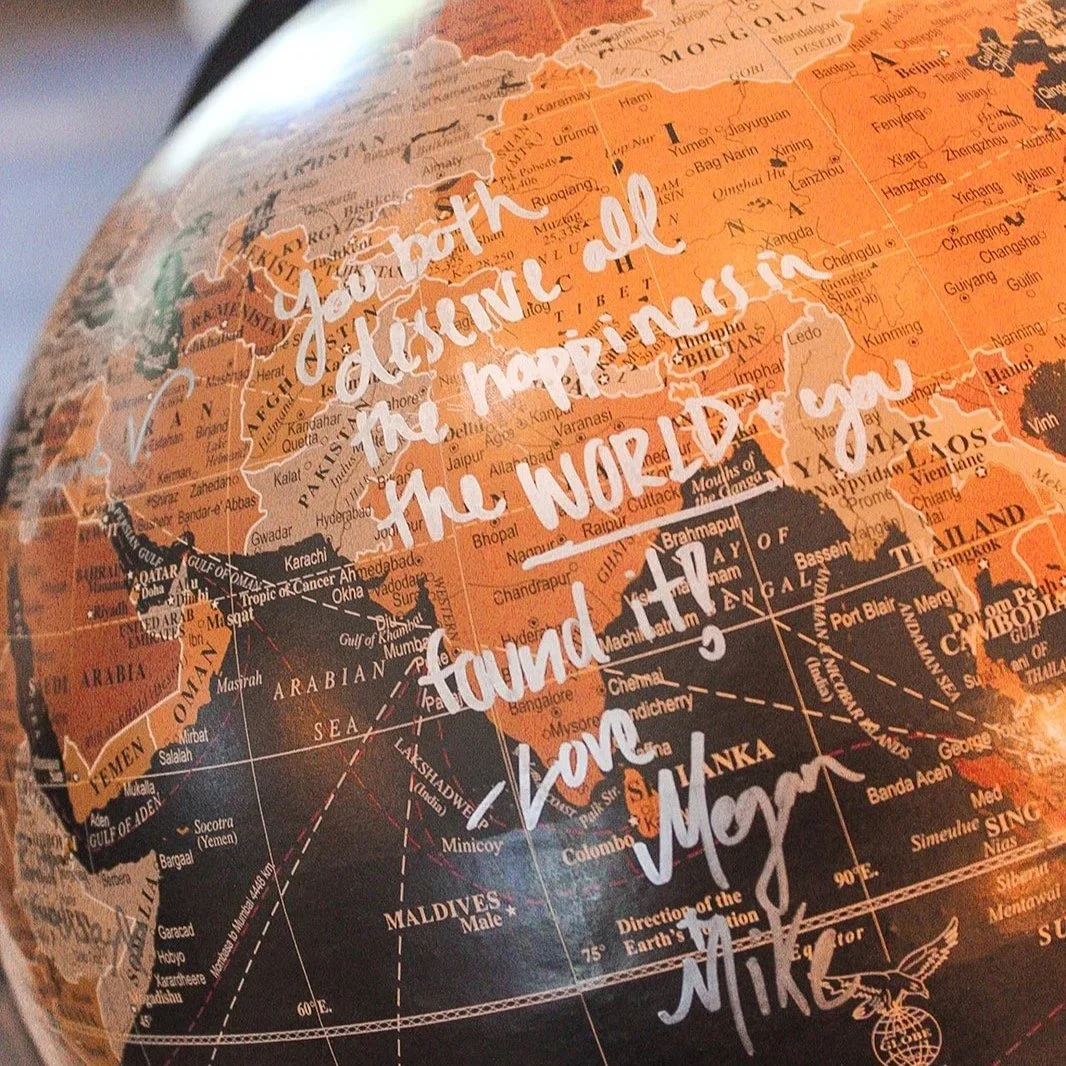 You both
deserve all
the happiness in
the WORLD & you
found it!
- Love
Megan
Mike
MONGOLIA
Mandalgobi
DESERT
GOBI
Baotou
Beijing
Tianjin
Taiyuan
Jinan
Fenyang
Zhengzhou
Xi'an
Hanzhong
Yichang
Wuhan
Chongqing
Changsha
Guiyang
Guilin
Nanning
Kunming
Chengdu
Xangda
Karamay
Hami
Urumqi
Lop Nur
Yumen
Jiayuguan
Bag Narin
Xining
Qinghai Hu
Lanzhou
Ruoqiang
Muztag
25,338
TIBET
CHINA
KAZAKHSTAN
Almaty
Bishkek
KYRGYZSTAN
K-2 28,250
Herat
Kandahar
Quetta
Kalat
PAKISTAN
Gwadar
Hyderabad
Karachi
Birjand
Kerman
Zahedan
Shiraz
Bandar-e' Abbas
Delhi
Agra
Kanpur
Varanasi
Jaipur
Allahabad
Bhopal
Nagpur
Raipur
Cuttack
Chandrapur
Brahmapur
Thimphu
BHUTAN
Imphal
Ledo
Mouths of
the Ganga
BAY OF
BENGAL
MYANMAR
Naypyidaw
Prome
Bassein
LAOS
Vientiane
Hanoi
Vinh
Chiang
Mai
THAILAND
Bangkok
CAMBODIA
GULF
OF
Port Blair
ANDAMAN SEA
ANDAMAN & NICOBAR ISLANDS
(India)
PERSIAN GULF
QATAR
Doha
GULF OF OMAN
UNITED ARAB
EMIRATES
Masqat
Tropic of Cancer
Okha
Gulf of Khambat
Mumbai
ARABIAN
SEA
Masirah
OMAN
Mirbat
Salalah
YEMEN
Mukalla
Aden
GULF OF ADEN
Socotra
(Yemen)
Bargaal
Berbera
SOMALIA
Garacad
Hobyo
Xarardheere
Mogadishu
45°
Mombasa to Mumbai 4448 km
60°E.
Riyadh
ARABIA
WESTERN
GHATS
Bangalore
Mysore
Chennai
LAKSHADWEEP
(India)
Minicoy
Colombo
SRI LANKA
Palk Str.
MALDIVES
Male
75°
Direction of the
Earth's Rotation
90°E.
Equator
Banda Aceh
George
Simeulue
Nias
Siberut
Mentawai
GLOBE